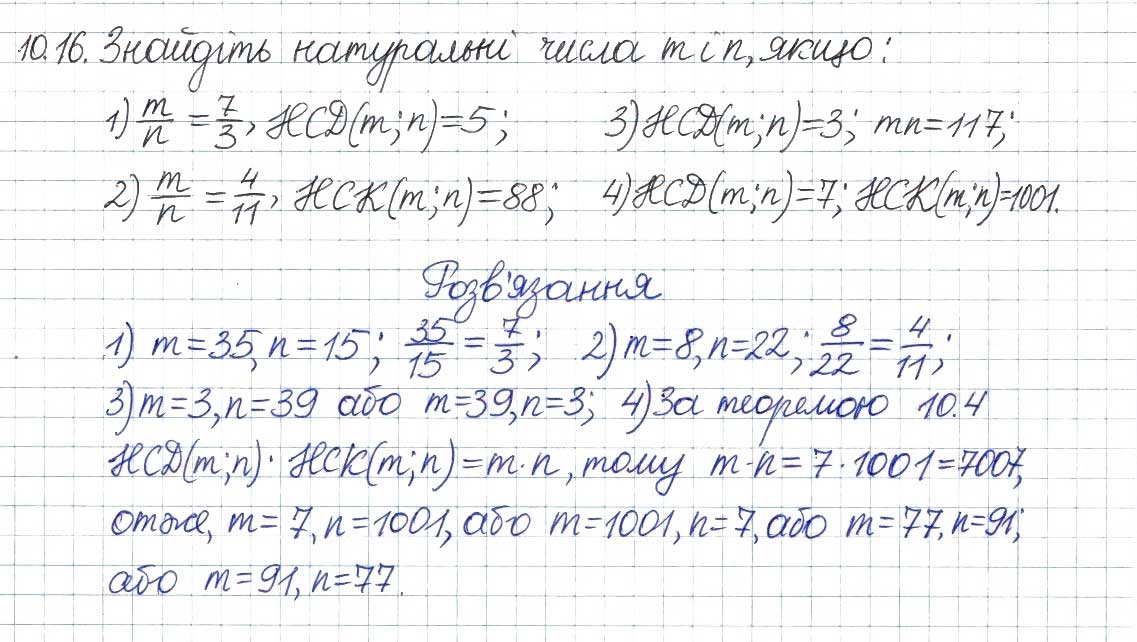 10.16. Знайдіть натуральні числа m і n, якщо:
1) m/n = 7/3, НСД(m;n)=5; 3) НСД(m;n)=3; mn=117;
2) m/n = 4/11, НСК(m;n)=88; 4) НСД(m;n)=7; НСК(m;n)=1001.
Розв'язання
1) m=35, n=15; 35/15 = 7/3; 2) m=8, n=22; 8/22 = 4/11;
3) m=3, n=39 або m=39, n=3; 4) За теоремою 10.4
НСД(m;n)·НСК(m;n)=m·n, тому m·n=7·1001=7007,
отже, m=7, n=1001, або m=1001, n=7, або m=77, n=91;
або m=91, n=77.